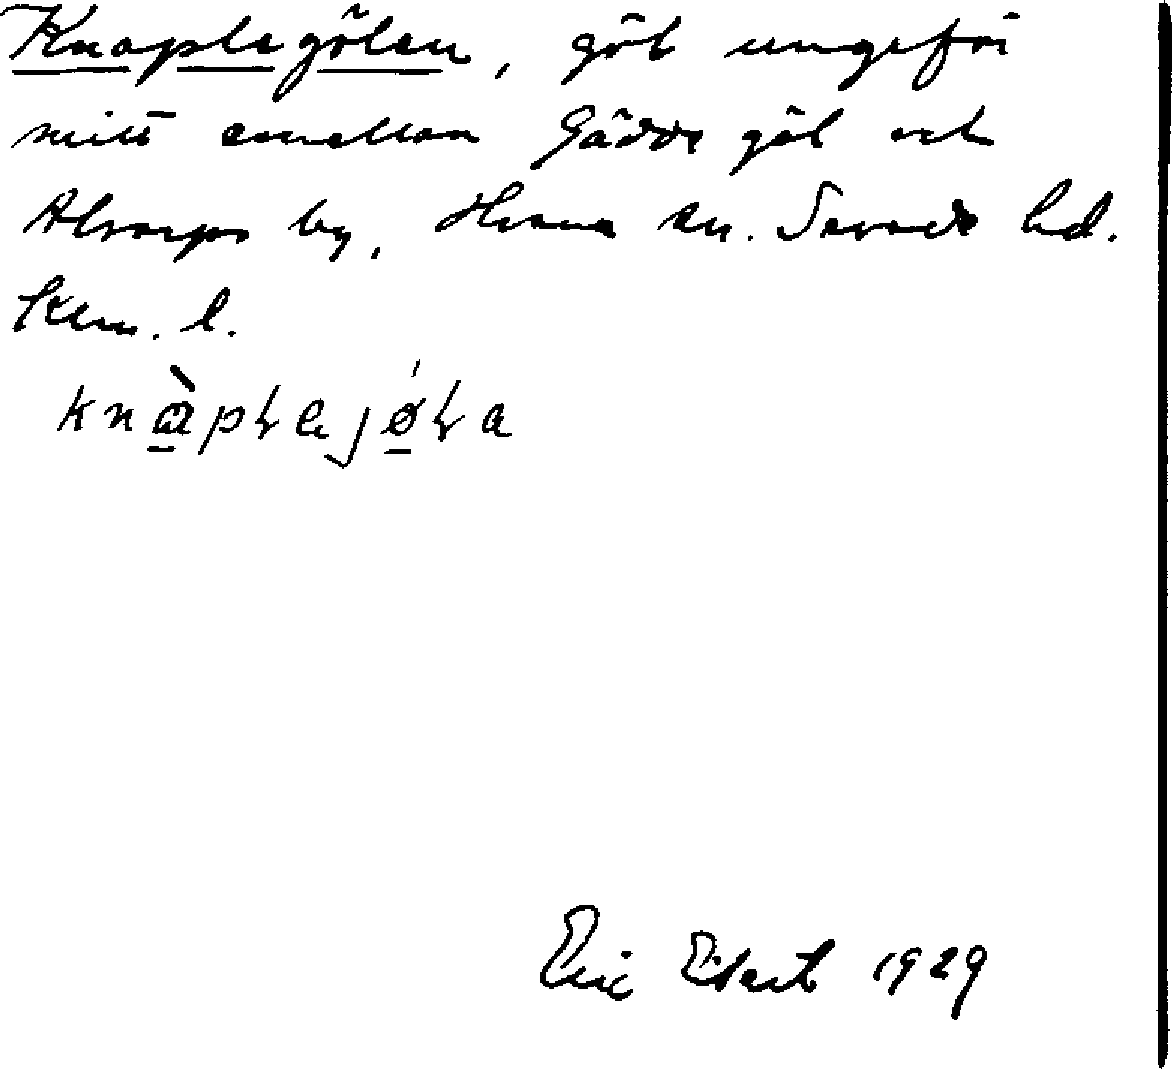 Knaplegölen, göl ungefär
mitt emellan Gädde göl och
Alsarps by, sn. Sevede hd.
Kalm. l.
knàpɫejǿɫa
Eric 1929